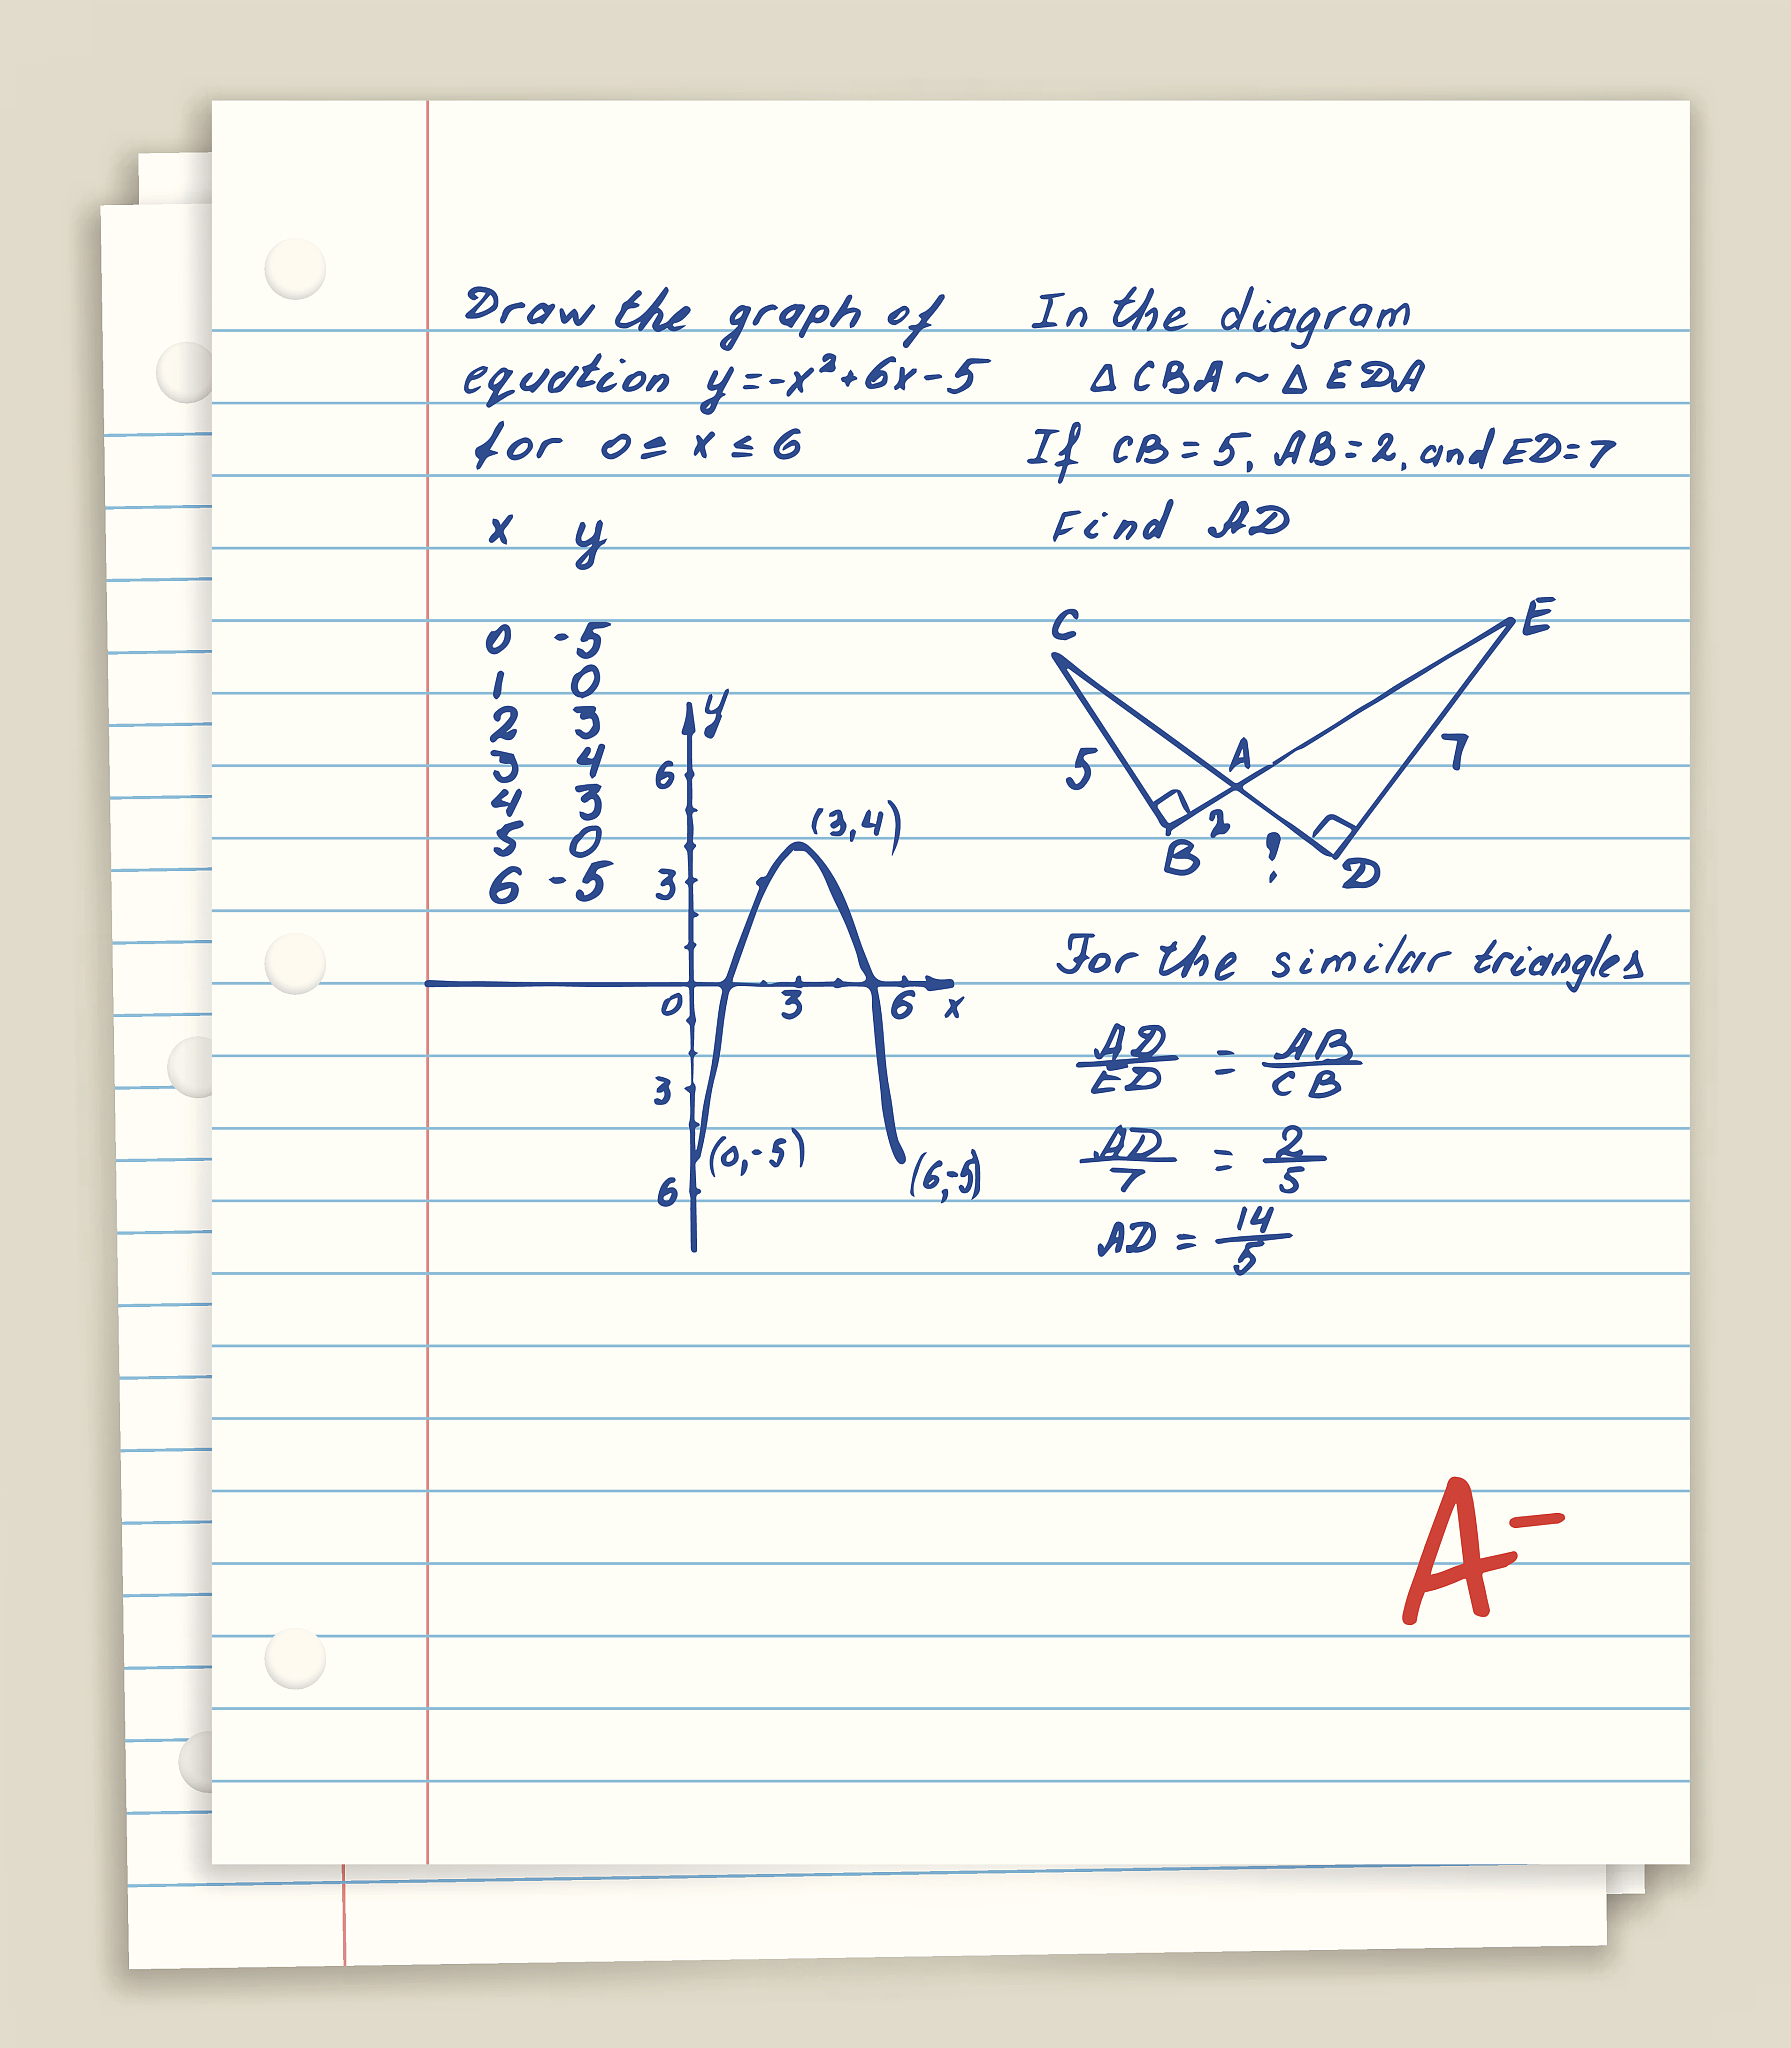 Draw the graph of
equation y=-x²+6x-5
for 0≤x≤6
x y
0 -5
1 0
2 3
3 4
4 3
5 0
6 -5
y
6
3
(3,4)
0 3 6 x
3
(0,-5)
6
(6,-5)
In the diagram
Δ CBA ~ Δ EDA
If CB = 5, AB = 2, and ED = 7
Find AD
C E
5 A 7
B 2 ? D
For the similar triangles
AD/ED = AB/CB
AD/7 = 2/5
AD = 14/5
A-